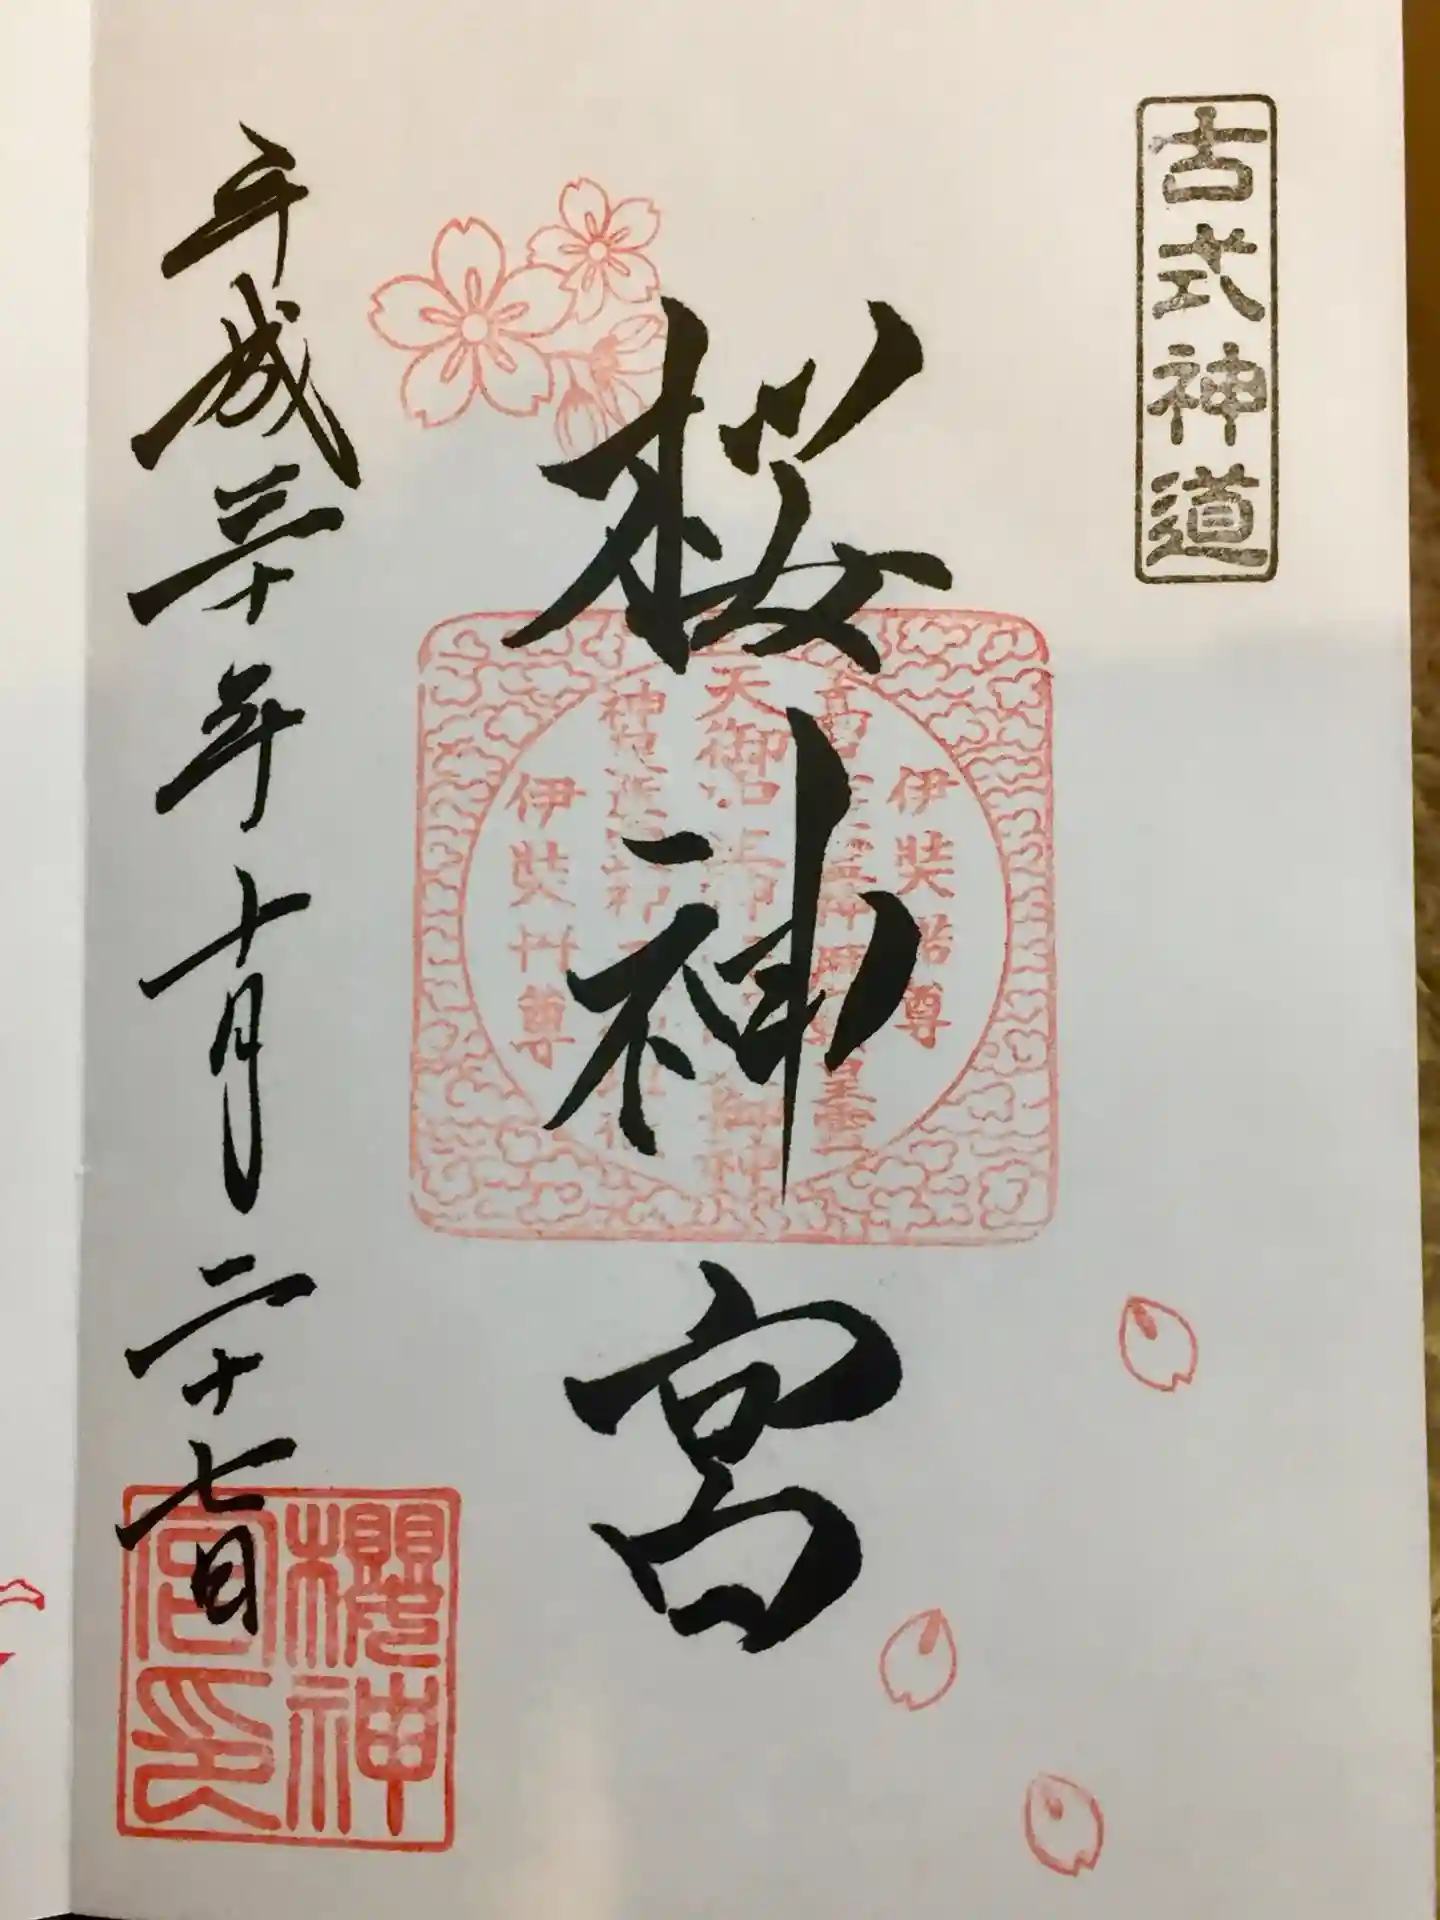 古式神道
桜神宮
伊奘諾尊
天御中主神
伊奘冊尊
平成三十年十月二十七日
櫻神
宮印